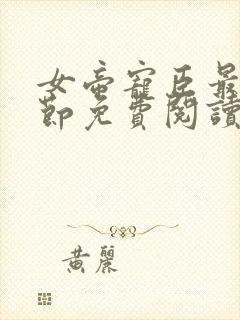 女帝寵臣最
節免費閱讀
黃麗